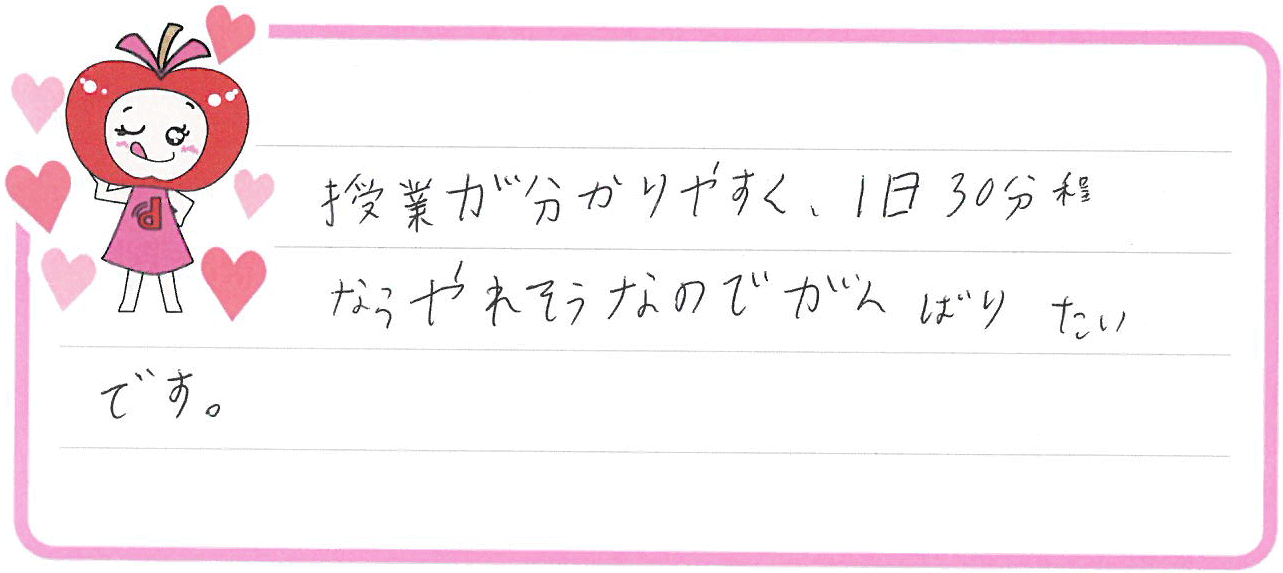 授業が分かりやすく、1日30分程
ならやれそうなのでがんばりたい
です。
d